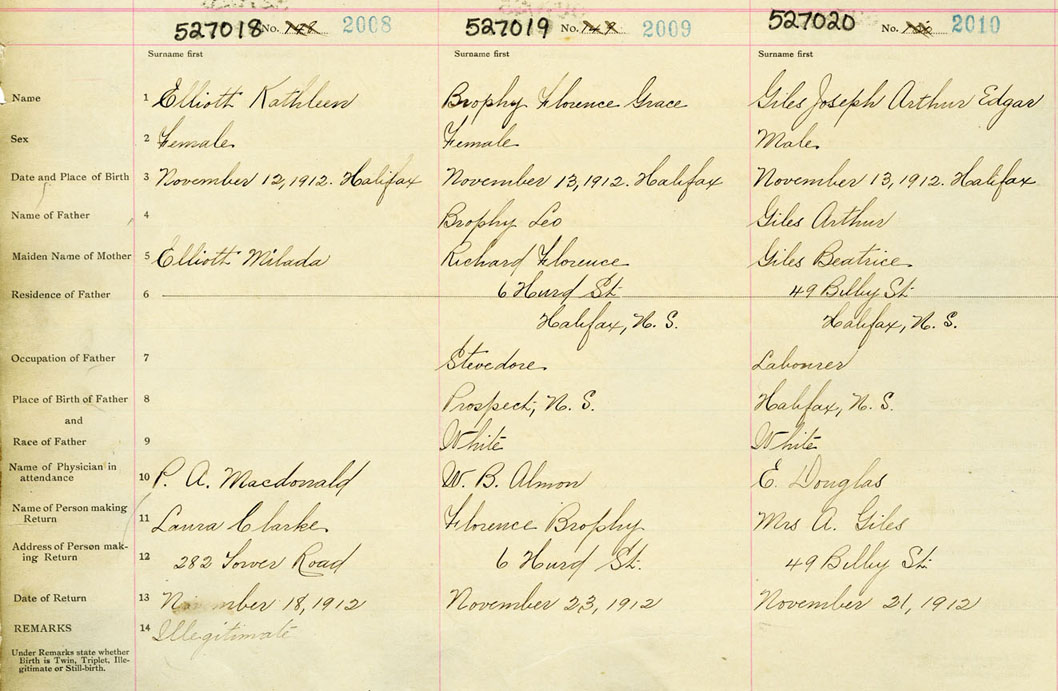 527018 No. 2008 527019 No. 2009 527020 No. 2010
Surname first Surname first Surname first
Name 1 Elliott Kathleen Brophy Florence Grace Giles Joseph Arthur Edgar
Sex 2 Female Female Male
Date and Place of Birth 3 November 12, 1912. Halifax November 13, 1912. Halifax November 13, 1912. Halifax
Name of Father 4 Brophy Leo Giles Arthur
Maiden Name of Mother 5 Elliott Milada Richard Florence Giles Beatrice
Residence of Father 6 6 Hurd St. 49 Bilby St.
Halifax, N. S. Halifax, N. S.
Occupation of Father 7 Stevedore Labourer
Place of Birth of Father 8 Prospect, N. S. Halifax, N. S.
and
Race of Father 9 White White
Name of Physician in
attendance 10 P. A. Macdonald W. B. Almon E. Douglas
Name of Person making
Return 11 Laura Clarke Florence Brophy Mrs A. Giles
Address of Person mak-
ing Return 12 282 Tower Road 6 Hurd St. 49 Bilby St.
Date of Return 13 November 18, 1912 November 23, 1912 November 21, 1912
REMARKS 14 Illegitimate
Under Remarks state whether
Birth is Twin, Triplet, Ille-
gitimate or Still-birth.